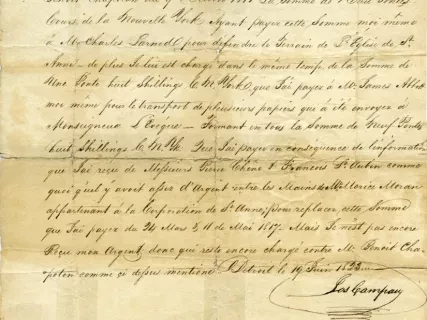 Cours de la Nouvelle York. Ayant payez cette Somme moi même
à Mr Charles Larned pour défendre le Terrain de l'Eglise de St.
Anne - de plus Je lui est chargé dans le même temps de la Somme de
Une Ponte huit Shillings C. N. York, que J'ai payez à Mr James Abbott
moi même pour le transport de plusieurs papiers que à été envoyez à
Monseigneur L'Evêque - Formant en tous la Somme de Neuf Pontes
huit Shillings C. N. Yk. que J'ai payez en consequence de l'information
que J'ai reçue de Messieurs Pierre Chêne & François St. Aubin comme
quoi qu'il y avoit assez d'Argent entre les Mains de Mr Lorice Moran
appartenant à la Corporation de St. Anne, pour replacer cette Somme
que J'ai payez du 24 Mars & 11 de Mai 1817. Mais Je n'est pas encore
Reçue mon Argent, donc que reste encore chargé contre Mr Benoit Cha-
poton comme ci dessus mentione. Detroit le 19 Juin 1823
Jos Campau